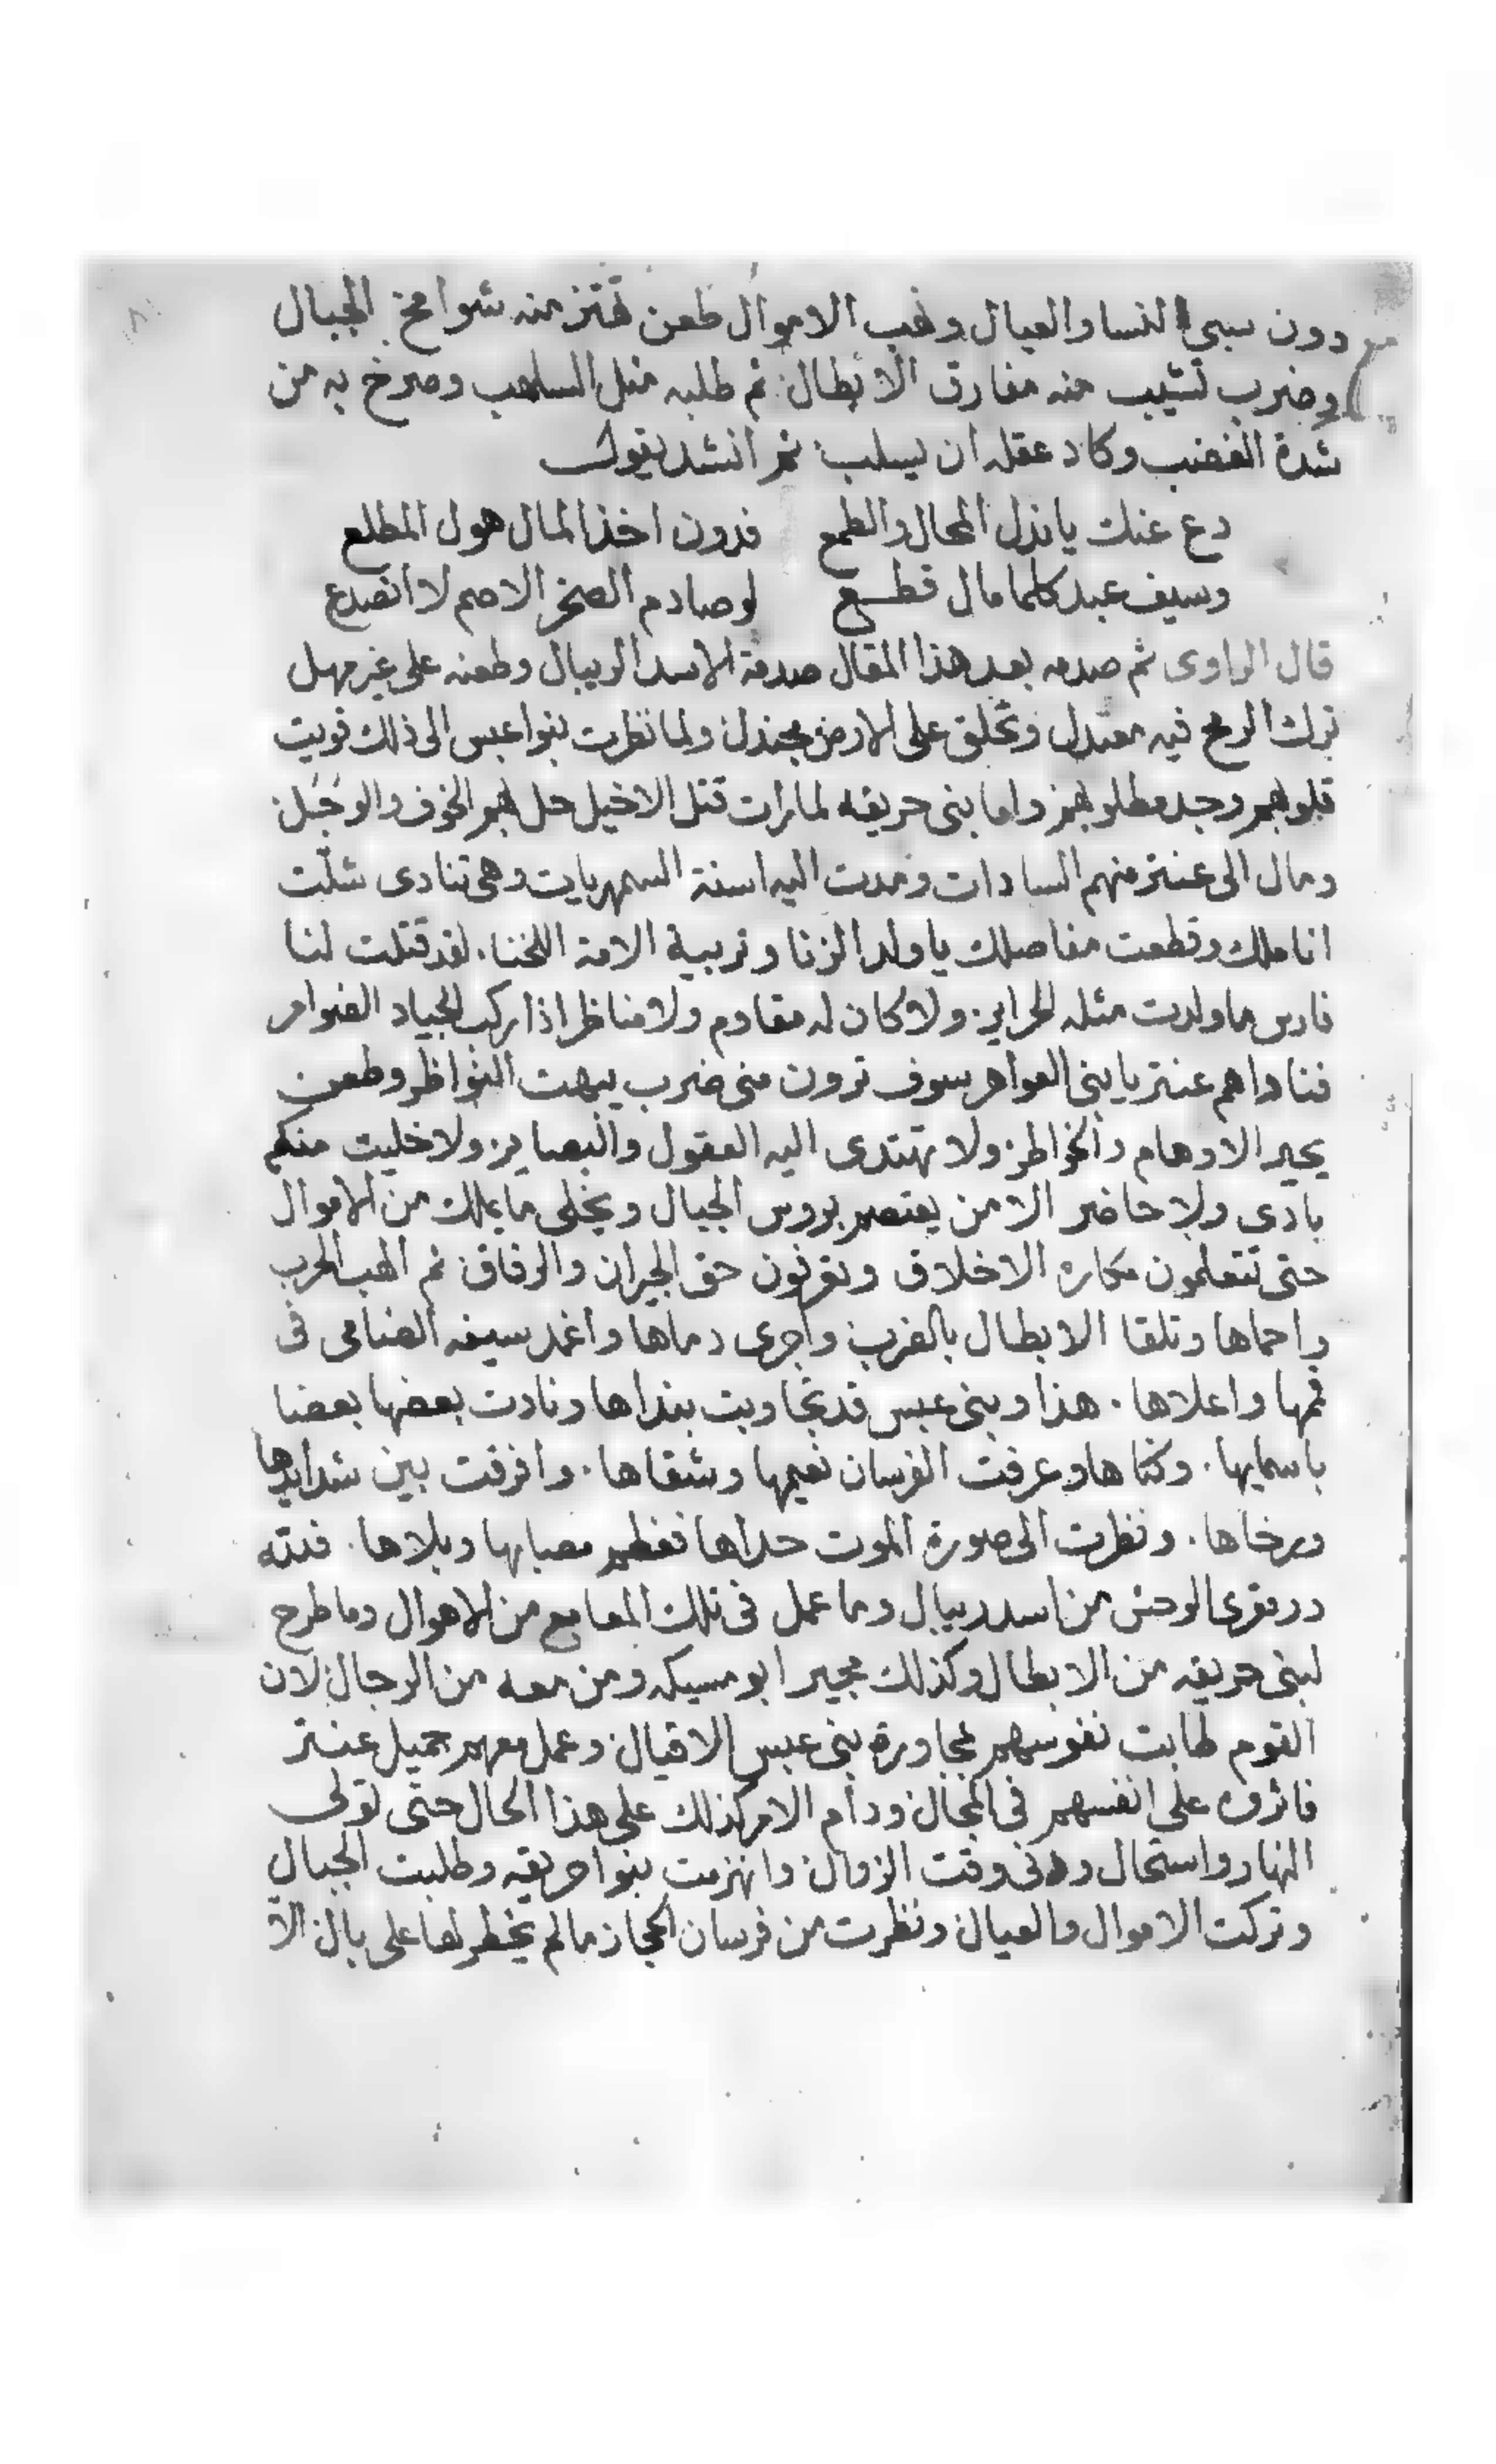 دون سبي النسا والعيال ونهب الاموال طعن تهتز منه شوامخ الجبال
وضرب تشيب منه مفارق الابطال ثم طلبه مثل السلهب وصرخ به من
شدة الغضب وكاد عقله ان يسلب ثم انشد يقول
دع عنك يا نذل المحال والطمع فدون اخذ المال هول المطلع
وسيف عبد كلما مال قطع لو صادم الصخر الاصم لا انصدع
قال الراوى ثم صدمه بعد هذا المقال صدمة الاسد الريبال وطعنه على غير مهل
ترك الرمح فيه معتدل وتخلق على الارض مجندل ولما نظرت بنوا عبس الى ذلك قويت
قلوبهم وجد مطلوبهم واما بنى حريقه لما رات قتل الاخيل حل بهم الخوف والوجل
ومال الى عنتر منهم السادات ومدت اليه اسنة السمهريات وهى تنادى شلت
اناملك وقطعت مفاصلك يا ولد الزنا وتربية الامة اللخنا. لقد قتلت لنا
فارس ما ولدت مثله الحراير. ولا كان له مقاوم ولا مناظر اذا ركب الجياد الضوامر
فناداهم عنتر يا بنى العواهر سوف ترون منى ضرب يبهت النواظر وطعن
يحير الاوهام والخواطر ولا تهتدى اليه العقول والبصاير ولا خليت منكم
بادى ولا حاضر الا من يعتصم بروس الجبال ويخلى ما يملك من الاموال
حتى تتعلمون مكاره الاخلاق وتعرفون حق الجيران والرفاق ثم الهب الحرب
واحماها وتلقا الابطال بالضرب واجرى دماها واغمد سيفه الضامى فى
قمها واعلاها . هذا وبنى عبس قد تجاوبت بنداها ونادت بعضها بعضا
باسمايها . وكناها وعرفت الفرسان نعيمها وشقاها . وافرقت بين شدايدها
ورخاها . ونظرت الى صورة الموت حداها فعظم مصابها وبلاها . فلله
در مقرى الوحش من اسد ريبال وما عمل فى تلك المعامع من الاهوال وما طرح
لبنى حريقه من الابطال وكذلك مجير ابو مسيكه ومن معه من الرجال لان
القوم طابت نفوسهم لمجاورة بنى عبس الاقيال وعمل معهم جميل عنتر
فاثروه على انفسهم فى المجال ودام الامر كذلك على هذا الحال حتى تولى
النهار واستحال ودنى وقت الزوال وانهزمت بنوا حريقه وطلبت الجبال
وتركت الاموال والعيال ونظرت من فرسان الحجاز ما لم يخطر لها على بال الا